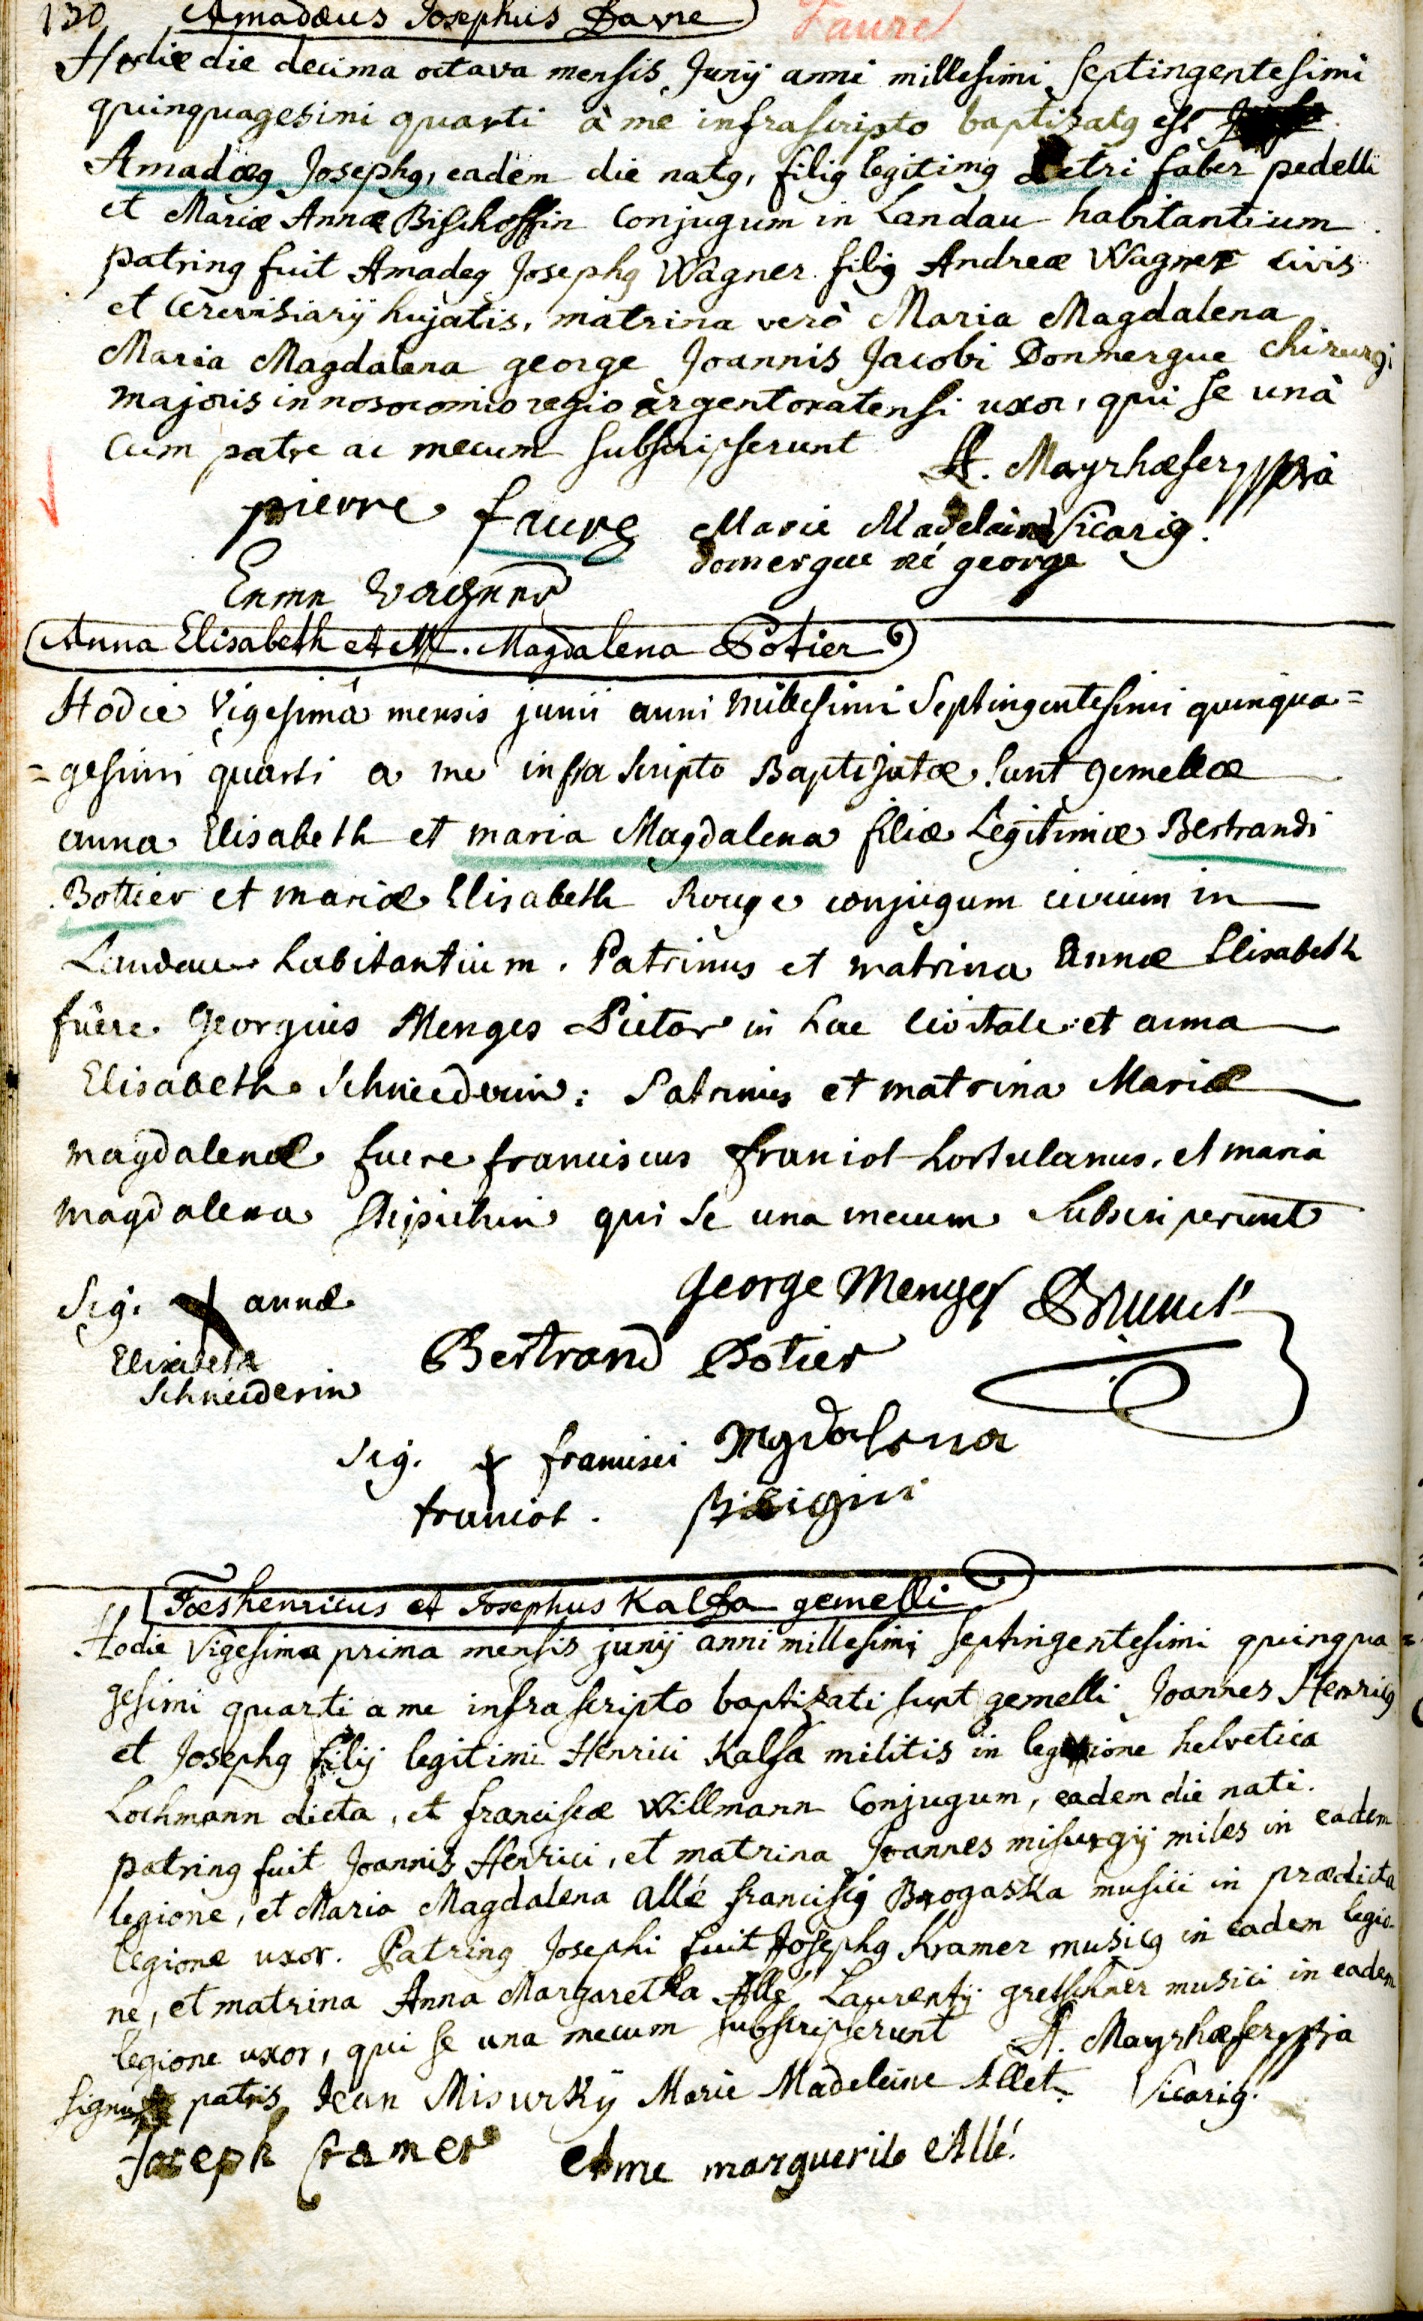 130 Amadæus Josephus Favre Faure
Hodie die decima octava mensis Junÿ anni millesimi septingentesimi
quinquagesimi quarti à me infrascripto baptizatg est
Amadæg Josephg, eadem die natg, filig legitimg Petri faber pedelli
et Mariæ Annæ Bischoffin Conjugum in Landau habitantium
patring fuit Amadeg Josephg Wagner filig Andreæ Wagner civis
et Cerevisiarÿ hujatis, matrina verò Maria Magdalena
Maria Magdalena george Joannis Jacobi Donnergue Chirurgi
majoris in nosocomio regio argentoratensi uxor, qui se unà
cum patre ac mecum subscripserunt A. Mayrhæfer
pierre faure Marie Madelaine Vicarig.
domergue né george
Anna Elisabeth et M. Magdalena Potier
Hodie Vigesimâ mensis junii anni millesimi Septingentesimi quinqua=
=gesimi quarti a me infra scripto Baptizatæ sunt gemellæ
anna Elisabeth et maria Magdalena filiæ Legitimæ Bertrandi
Bottier et mariæ Elisabeth Rouge conjugum civium in
Landau habitantium. Patrinus et matrina Annæ Elisabeth
fuere Georgius Menges Pictor in hac civitate et anna
Elisabeth Schneiderin: Patrinus et matrina Mariæ
magdalenæ fuere franciscus franiot hortulanus, et maria
magdalena qui se una mecum Subscripserunt
Sig. + annæ George Menges Brunck
Elisabeth Bertrand Potier
Schneiderin
Sig. + francisci Mgdalena
franiot.
Joes henricus et Josephus Kalfa gemelli
Hodie Vigesima prima mensis junÿ anni millesimi septingentesimi quinqua=
gesimi quarti a me infrascripto baptizati sunt gemelli Joannes Henricg
et Josephg filÿ legitimi Henrici Kalfa militis in legione helvetica
Lochmann dicta, et franciscæ Willmann Conjugum, eadem die nati.
patring fuit Joannis Henrici, et matrina Joannes misurgÿ miles in eadem
legione, et Maria Magdalena Allé francisci Brogaska musici in prædicta
legione uxor. Patring Josephi fuit Josephg Kramer musicg in eadem legio-
ne, et matrina Anna Margaretha Allé Laurentÿ gretschner musici in eadem
legione uxor, qui se una mecum subscripserunt A. Mayrhæfer
signum patris Jean Misurkÿ Marie Madeleine Allet Vicarig.
Joseph Cramer Anne marguerite Allé.